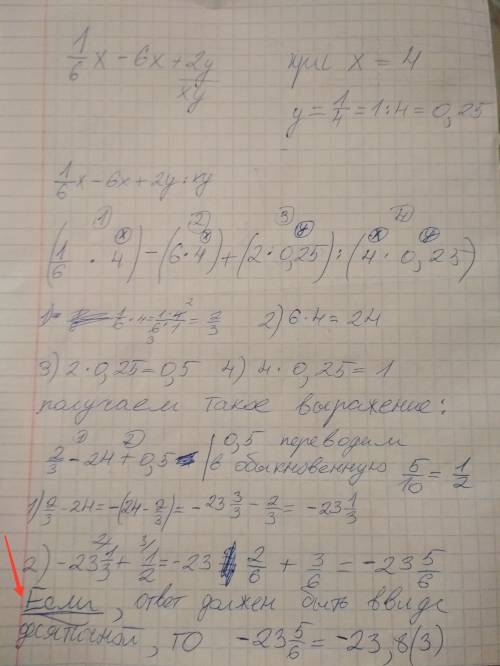 1/6 x - 6x + 2y/xy при x = 4
y = 1/4 = 1:4 = 0,25
1/6 x - 6x + 2y : xy
1) 2) 3) 4)
x x y x y
(1/6 · 4) - (6·4) + (2·0,25) : (4·0,25)
1) 1/6 · 4 = 1·4/6·1 = 2/3 2) 6·4 = 24
3) 2·0,25 = 0,5 4) 4·0,25 = 1
получаем такое выражение:
1) 2)
2/3 - 24 + 0,5 | 0,5 переводим
в обыкновенную 5/10 = 1/2
1) 2/3 - 24 = -(24 - 2/3) = -23 3/3 - 2/3 = -23 1/3
2) -23 1/3 + 1/2 = -23 2/6 + 3/6 = -23 5/6
Если, ответ должен быть ввиде
десятичной, то -23 5/6 = -23,8(3)